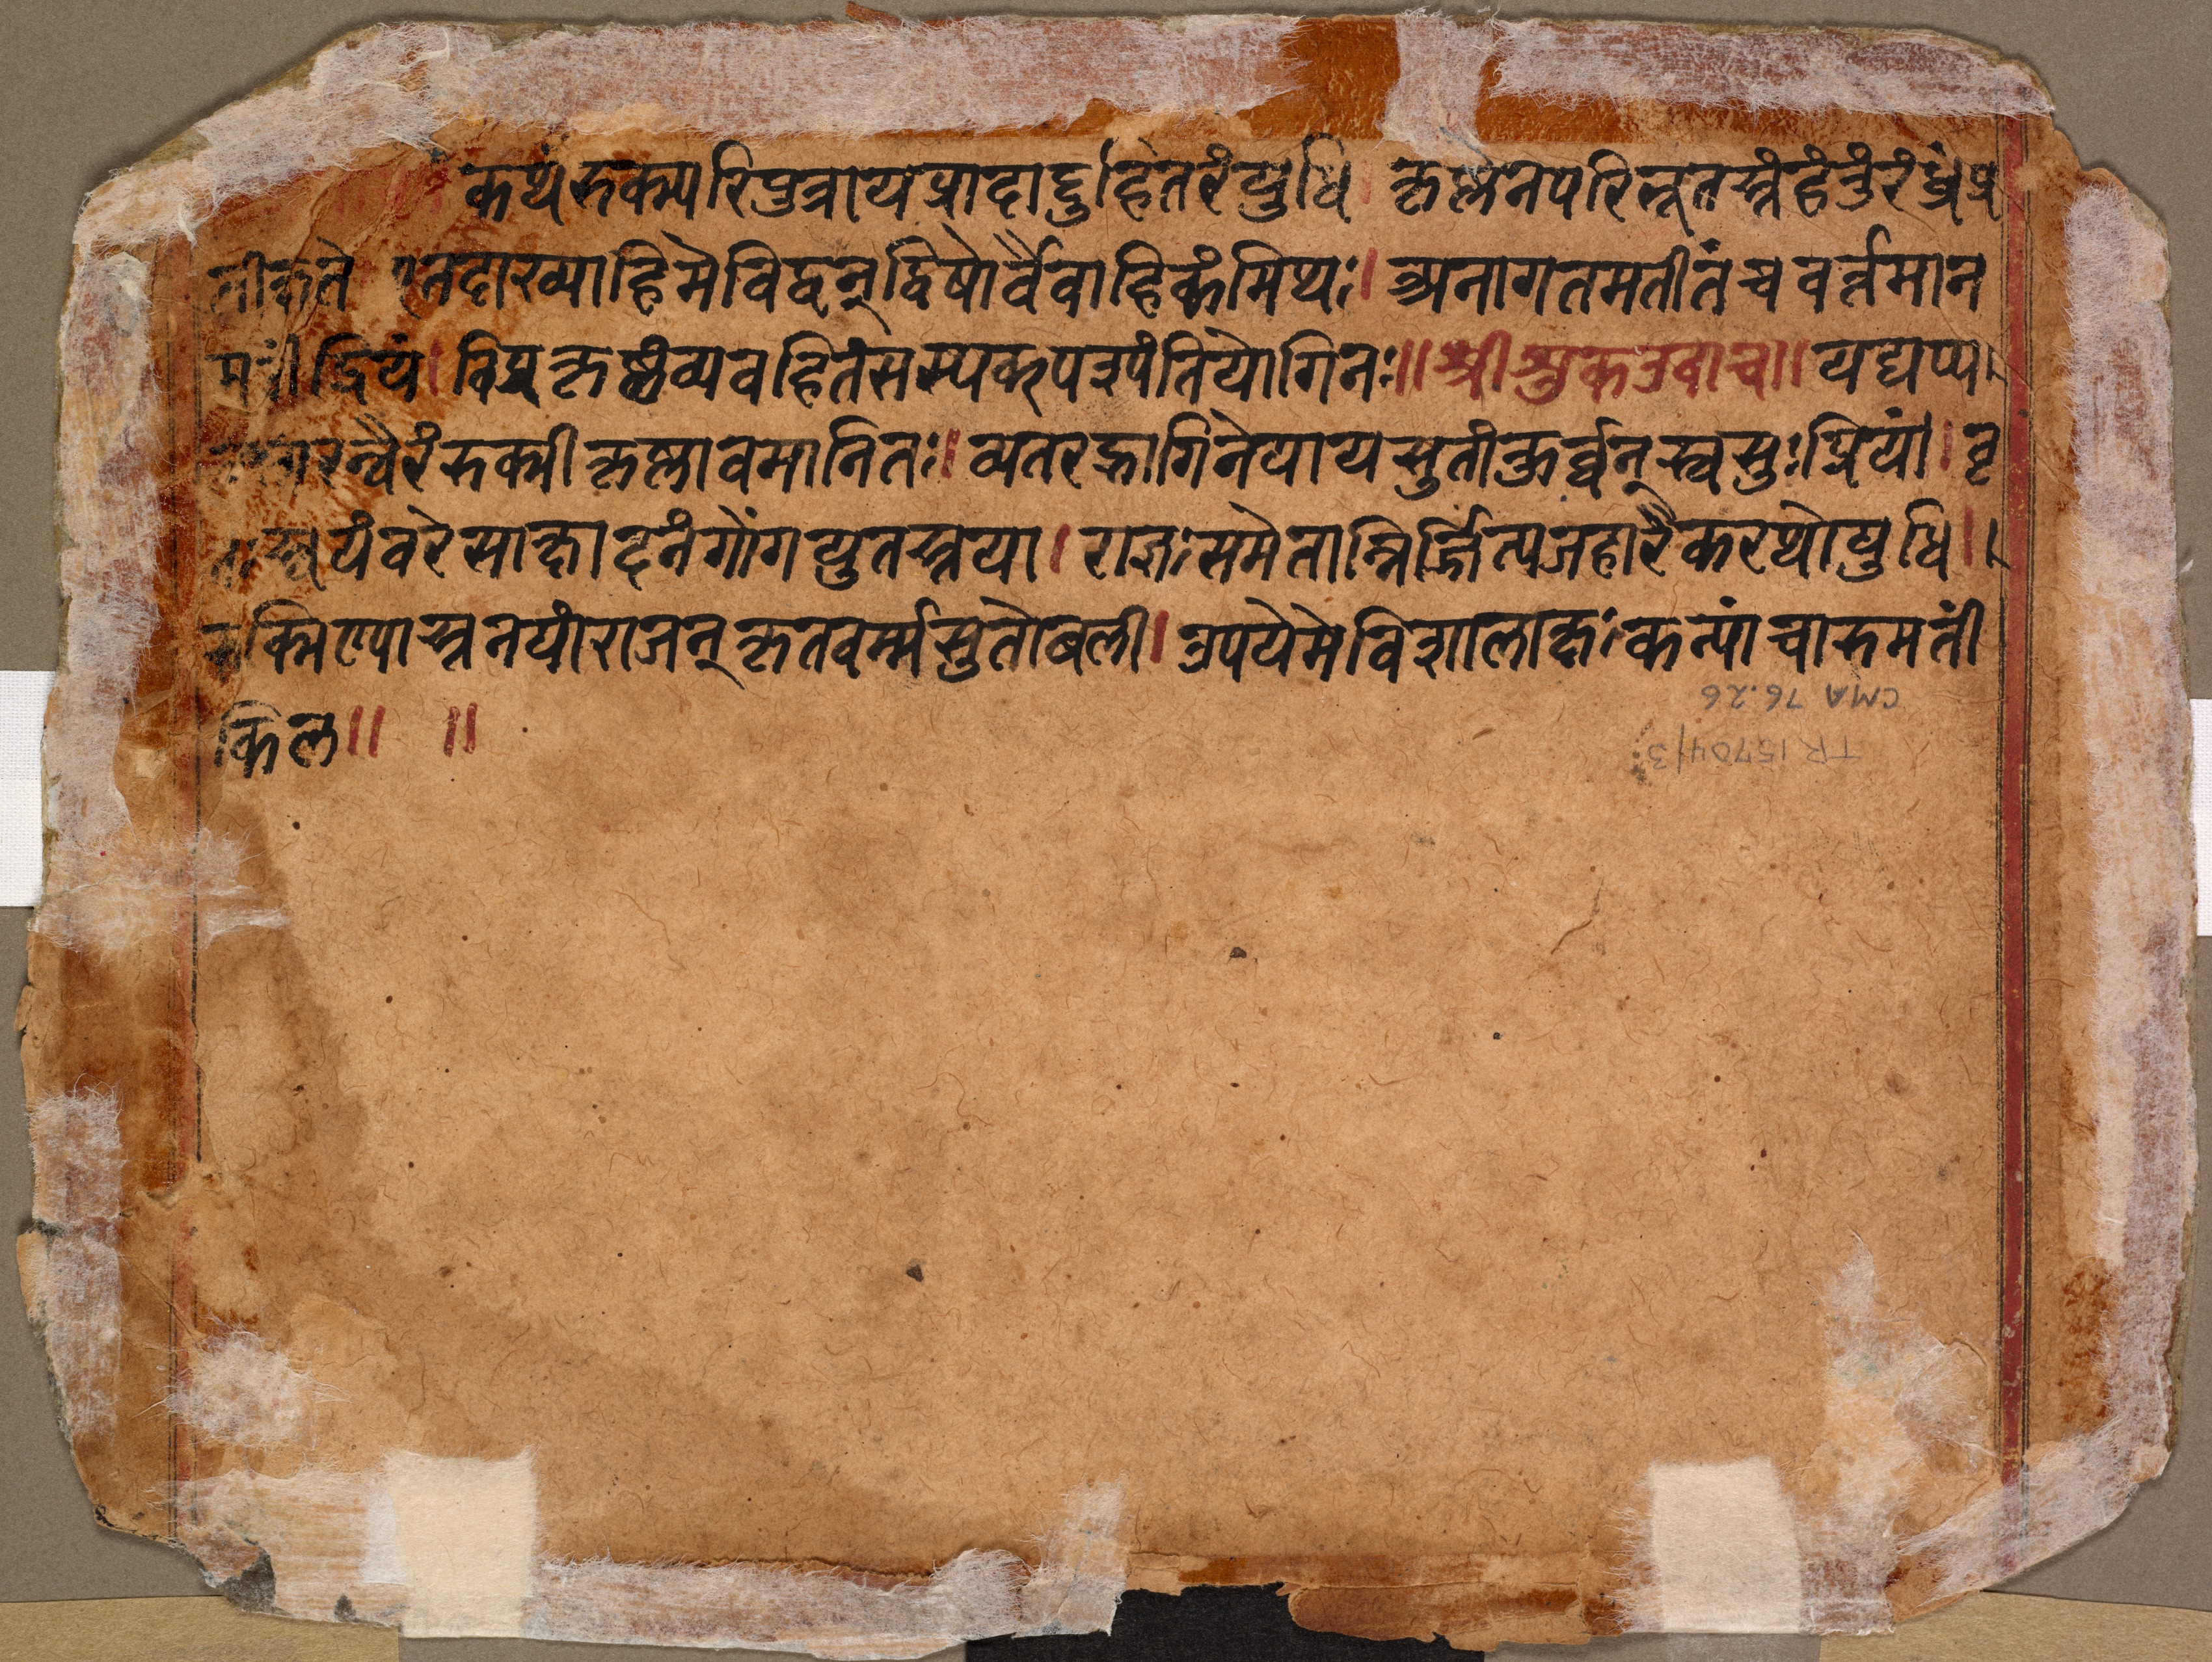 कथंरुक्म्यरिपुत्रायप्रादाद्दुहितरंयुधि। कृष्णेनपरिभूतस्तंहंतुंरंध्रंप्र
तीक्षते एतदाख्याहिमेविद्वन्द्विषोर्वैवाहिकंमिथः। अनागतमतीतंचवर्त्तमान
मतींद्रियं। विप्रकृष्टंव्यवहितंसम्यक्पश्यंतियोगिनः॥ श्रीशुकउवाच॥ यद्यप्य
स्मरन्वैरंरुक्मीकृष्णावमानितः। व्यतरद्भागिनेयायसुतांकुर्व्वन्स्वसुःप्रियं। वृ
तःस्वयंवरेसाक्षादनंगोंगयुतस्तया। राज्ञःसमेतान्निर्ज्जित्यजहारैकरथोयुधि॥
रुक्मिण्यास्तनयांराजन्कृतवर्म्मसुतोबली। उपयेमेविशालाक्षःकन्यांचारुमतीं
किल॥ ॥
CMA 76.26
TR 15704/3